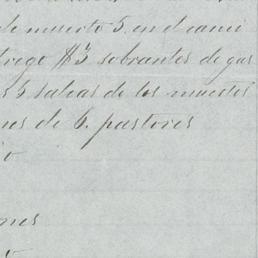 de muerto 5. en el cami
trego $3 sobrantes de gas
55 saleas de los muertos
nes de 6. pastores
o
ones